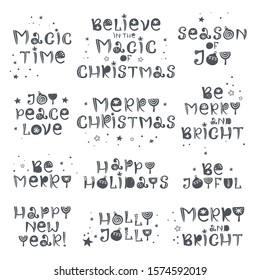 MAGIC
TIME
BELIEVE
IN THE
MAGIC
OF
CHRISTMAS
SEASON
OF
JOY
JOY
PEACE
LOVE
MERRY
CHRISTMAS
BE
MERRY
AND
BRIGHT
BE
MERRY
HAPPY
HOLIDAYS
BE
JOYFUL
HAPPY
NEW
YEAR!
HOLLY
JOLLY
MERRY
AND
BRIGHT
shutterstock.com · 1574592019